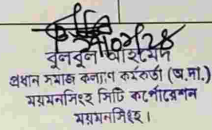 বুলবুল আহমেদ
প্রধান সমাজ কল্যাণ কর্মকর্তা (অ.দা.)
ময়মনসিংহ সিটি কর্পোরেশন
ময়মনসিংহ।